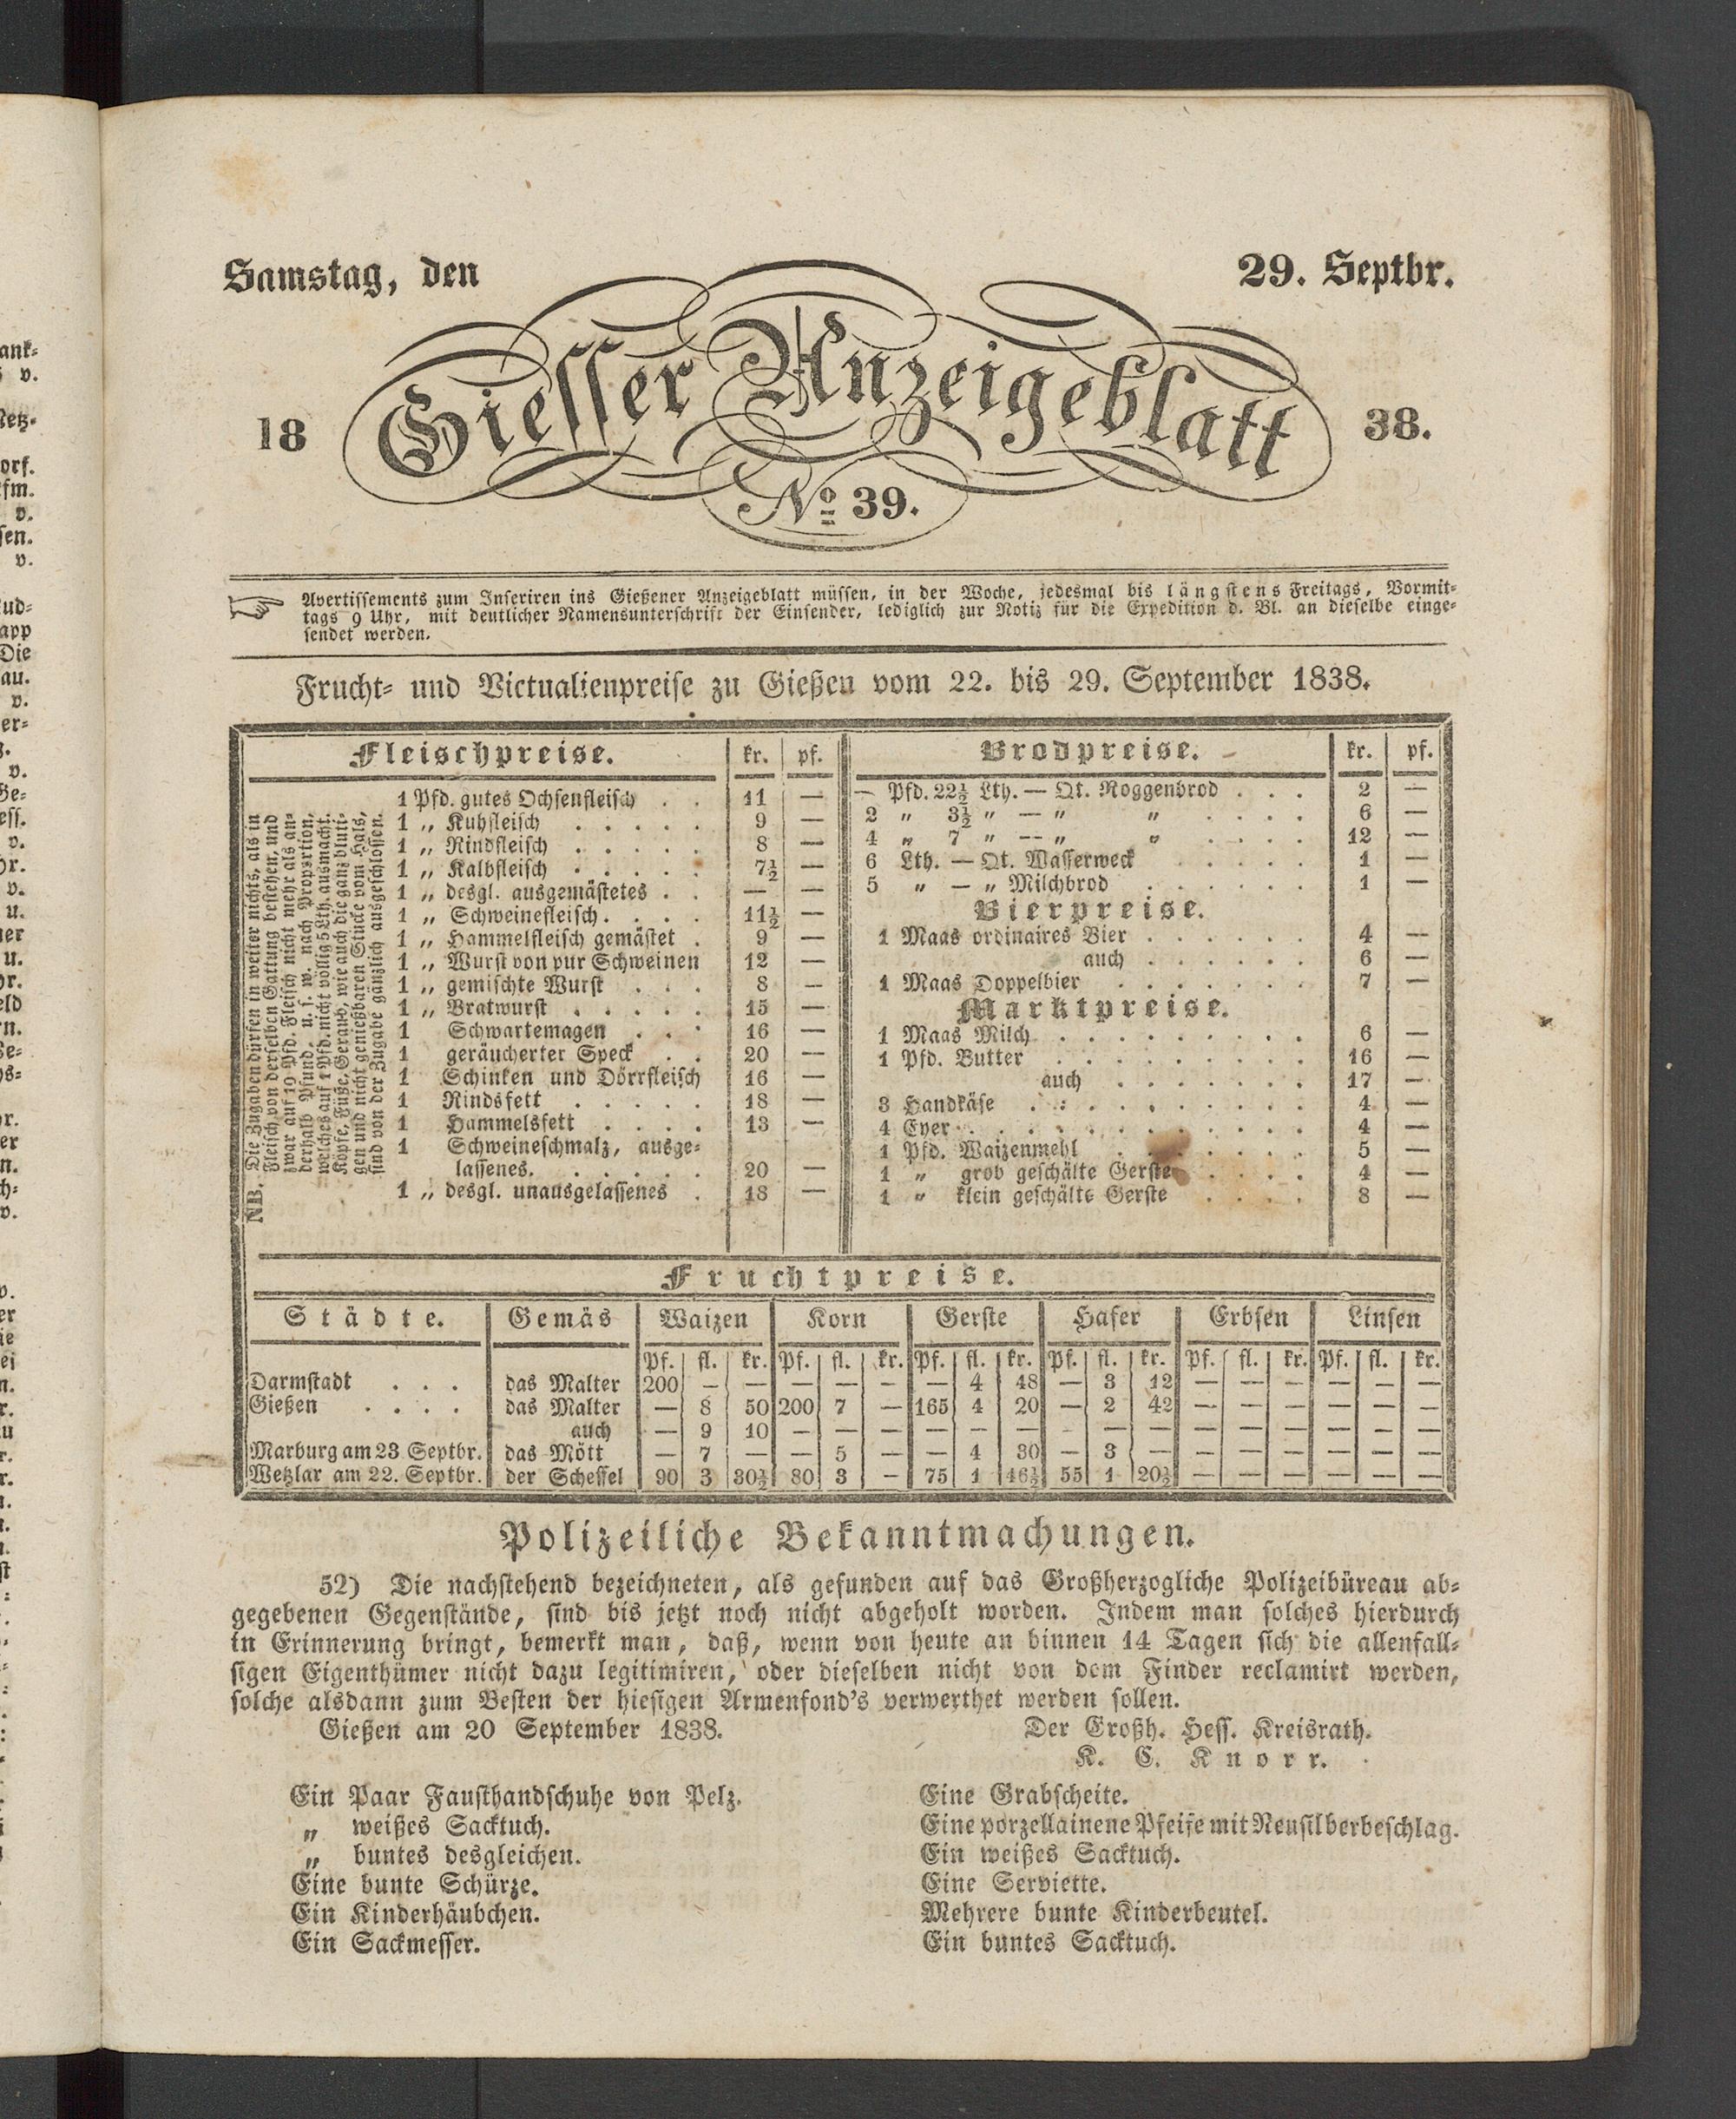 Samstag, den 29. Septbr.
Giesser Anzeigeblatt
18 38.
No 39.
Avertissements zum Inseriren ins Gießener Anzeigeblatt müssen, in der Woche, jedesmal bis längstens Freitags, Vormit-
tags 9 Uhr, mit deutlicher Namensunterschrift der Einsender, lediglich zur Notiz für die Expedition d. Bl. an dieselbe einge-
sendet werden.
Frucht- und Victualienpreise zu Gießen vom 22. bis 29. September 1838.
Fleischpreise. kr. pf.
NB. Die Zugaben dürfen in weiter nichts, als in
Fleisch, von derselben Gattung bestehen, und
zwar auf 10 Pfd. Fleisch nicht mehr als an-
derhalb Pfund u. s. w. nach Proportion,
welches auf 1 Pfd. nicht völlig 5 Lth. ausmacht.
Köpfe, Füße, Geraub, wie auch die ganz bluti-
gen und nicht genießbaren Stücke vom Hals,
sind von der Zugabe gänzlich ausgeschlossen.
1 Pfd. gutes Ochsenfleisch . . 11 —
1 „ Kuhfleisch . . . . . 9 —
1 „ Rindfleisch . . . . . 8 —
1 „ Kalbfleisch . . . . . 7½ —
1 „ desgl. ausgemästetes . . — —
1 „ Schweinefleisch. . . . 11½ —
1 „ Hammelfleisch gemästet . 9 —
1 „ Wurst von pur Schweinen 12 —
1 „ gemischte Wurst . . . 8 —
1 „ Bratwurst . . . . . 15 —
1 Schwartemagen . . . 16 —
1 geräucherter Speck . . 20 —
1 Schinken und Dörrfleisch 16 —
1 Rindsfett . . . . . 18 —
1 Hammelsfett . . . . 13 —
1 Schweineschmalz, ausge-
lassenes. . . . . . 20 —
1 „ desgl. unausgelassenes . 18 —
Brodpreise. kr. pf.
— Pfd. 22½ Lth. — Qt. Roggenbrod . . . 2 —
2 „ 3½ „ — „ „ . . . . 6 —
4 „ 7 „ — „ „ . . . . 12 —
6 Lth. — Qt. Wasserweck . . . . . 1 —
5 „ — „ Milchbrod . . . . . . 1 —
Bierpreise.
1 Maas ordinaires Bier . . . . . . 4 —
auch . . . . . . 6 —
1 Maas Doppelbier . . . . . . . 7 —
Marktpreise.
1 Maas Milch . . . . . . . . . 6 —
1 Pfd. Butter . . . . . . . . . 16 —
auch . . . . . . . 17 —
3 Handkäse . . . . . . . . . . 4 —
4 Eyer . . . . . . . . . . . . 4 —
1 Pfd. Waizenmehl . . . . . . . 5 —
1 „ grob geschälte Gerste . . . . 4 —
1 „ klein geschälte Gerste . . . . 8 —
Fruchtpreise.
Städte. Gemäs Waizen Korn Gerste Hafer Erbsen Linsen
Pf. fl. kr. Pf. fl. kr. Pf. fl. kr. Pf. fl. kr. Pf. fl. kr. Pf. fl. kr.
Darmstadt . . . das Malter 200 — — — — — — 4 48 — 3 12 — — — — — —
Gießen . . . . das Malter — 8 50 200 7 — 165 4 20 — 2 42 — — — — — —
auch — 9 10 — — — — — — — — — — — — — — —
Marburg am 23 Septbr. das Mött — 7 — — 5 — — 4 30 — 3 — — — — — — —
Wetzlar am 22. Septbr. der Scheffel 90 3 30½ 80 3 — 75 1 46½ 55 1 20½ — — — — — —
Polizeiliche Bekanntmachungen.
52) Die nachstehend bezeichneten, als gefunden auf das Großherzogliche Polizeibüreau ab-
gegebenen Gegenstände, sind bis jetzt noch nicht abgeholt worden. Indem man solches hierdurch
in Erinnerung bringt, bemerkt man, daß, wenn von heute an binnen 14 Tagen sich die allenfall-
sigen Eigenthümer nicht dazu legitimiren, oder dieselben nicht von dem Finder reclamirt werden,
solche alsdann zum Besten der hiesigen Armenfond's verwerthet werden sollen.
Gießen am 20 September 1838. Der Großh. Hess. Kreisrath.
K. C. Knorr.
Ein Paar Fausthandschuhe von Pelz.
„ weißes Sacktuch.
„ buntes desgleichen.
Eine bunte Schürze.
Ein Kinderhäubchen.
Ein Sackmesser.
Eine Grabscheite.
Eine porzellainene Pfeife mit Neusilberbeschlag.
Ein weißes Sacktuch.
Eine Serviette.
Mehrere bunte Kinderbeutel.
Ein buntes Sacktuch.